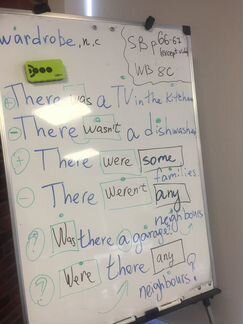 wardrobe, n, c
SB p 66-67
(except
WB 8C
+ There was a TV in the kitchen
- There wasn't a dishwasher
+ There were some
families
- There weren't any
neighbours
? Was there a garage?
? Were there any
neighbours?